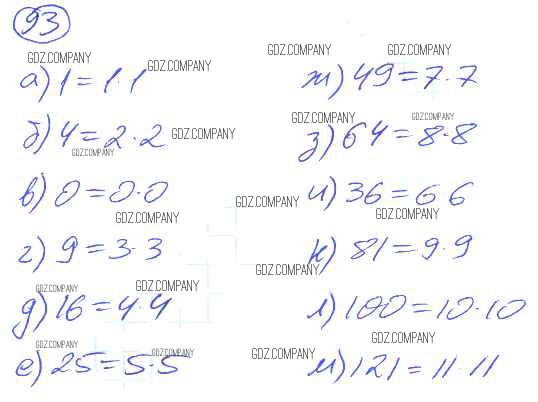 93
GDZ.COMPANY GDZ.COMPANY GDZ.COMPANY GDZ.COMPANY
а) 1 = 1·1
ж) 49 = 7·7
GDZ.COMPANY GDZ.COMPANY GDZ.COMPANY
б) 4 = 2·2
з) 64 = 8·8
GDZ.COMPANY
в) 0 = 0·0
и) 36 = 6 6
GDZ.COMPANY GDZ.COMPANY GDZ.COMPANY
г) 9 = 3·3
к) 81 = 9·9
GDZ.COMPANY GDZ.COMPANY GDZ.COMPANY
д) 16 = 4·4
л) 100 = 10·10
GDZ.COMPANY GDZ.COMPANY GDZ.COMPANY GDZ.COMPANY
е) 25 = 5·5
м) 121 = 11·11